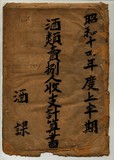 昭和十年度上半期
酒類賣捌人收支計算書
酒課